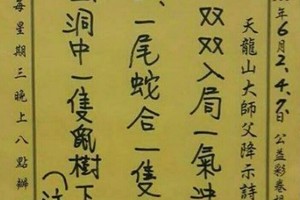 年6月2.4.7日公益彩卷
天龍山大師父降示詩
双双入局一氣沖
、一尾蛇合一隻
洞中一隻鼠樹下
每星期三晚上八點辦